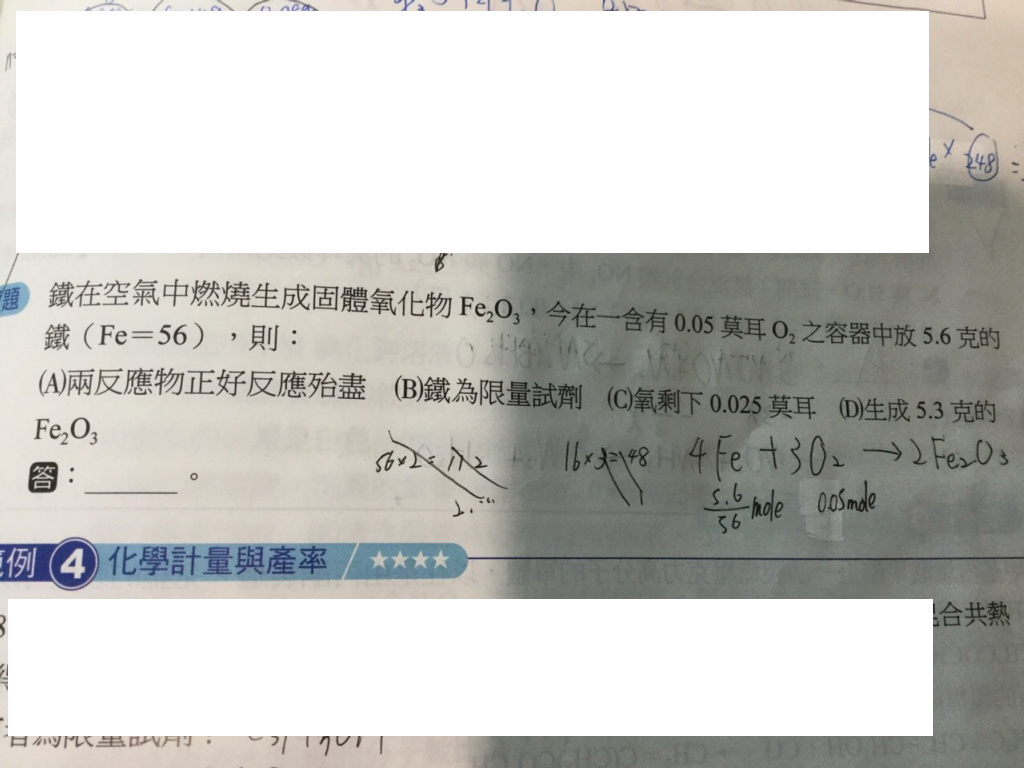 248
題 鐵在空氣中燃燒生成固體氧化物 Fe₂O₃，今在一含有 0.05 莫耳 O₂ 之容器中放 5.6 克的
鐵（Fe＝56），則：
(A)兩反應物正好反應殆盡 (B)鐵為限量試劑 (C)氧剩下 0.025 莫耳 (D)生成 5.3 克的
Fe₂O₃
56×2=112 16×3=48 4Fe＋3O₂→2Fe₂O₃
5.6/56 mole 0.05mole
答：______。
範例 4 化學計量與產率 ／ ★★★★
混合共熱